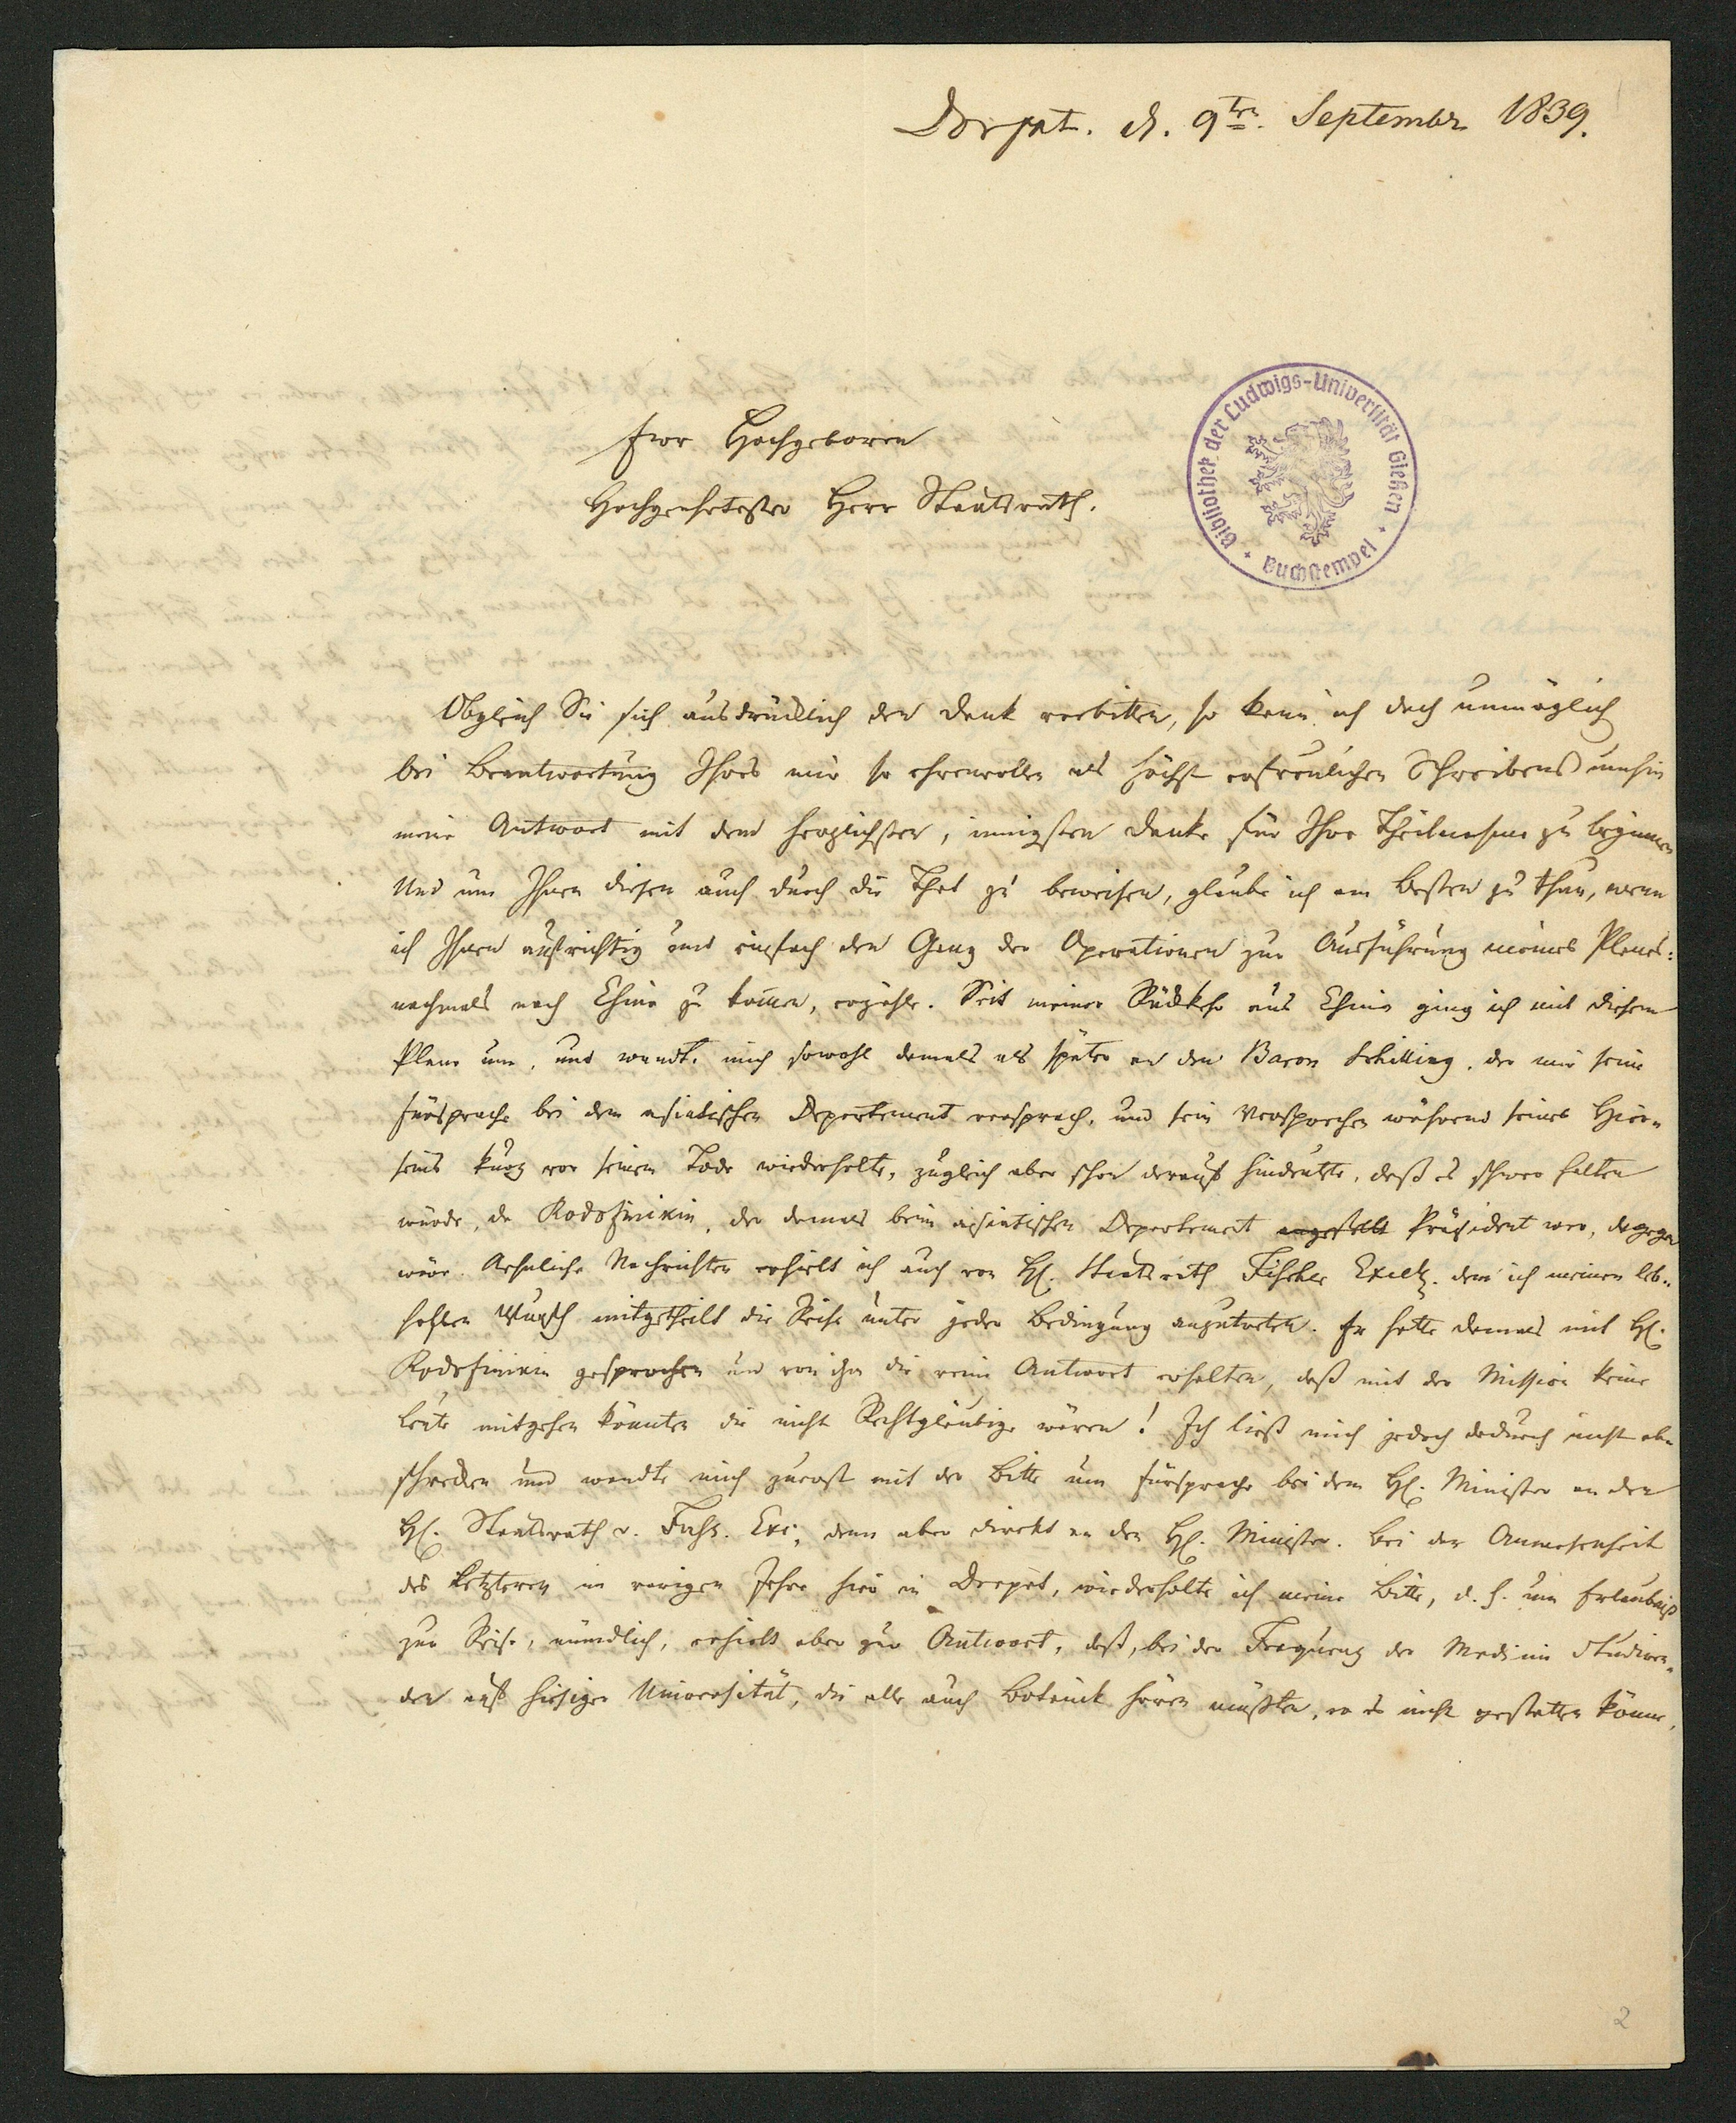 Dorpat. d. 9ten. September 1839.
Ewr Hochgeboren
Hochgeehrtester Herr Staatsrath.
Bibliothek der Ludwigs-Universität Gießen
Buchstempel
Obgleich Sie sich ausdrücklich den Dank verbitten, so kann ich doch unmöglich
bei Beantwortung Ihres mir so ehrenvollen als höchst erfreulichen Schreibens umhin
meine Antwort mit dem herzlichsten, innigsten Danke für Ihre Theilnahme zu beginnen
Und um Ihnen diesen auch durch die That zu beweisen, glaube ich am Besten zu thun, wenn
ich Ihnen aufrichtig und einfach den Gang der Operationen zur Ausführung meines Planes:
nochmals nach China zu kommen, erzähle. Seit meiner Rückkehr aus China ging ich mit diesem
Plane um, und wandte mich sowohl damals als später an den Baron Schilling, der mir seine
Fürsprache bei dem asiatischen Departement versprach, und sein Versprechen während seines Hier-
seins kurz vor seinem Tode wiederholte, zugleich aber schon darauf hindeutete, daß es schwer halten
würde, da Rodofinikin, der damals beim asiatischen Departement angestellt Präsident war, dagegen
wäre. Aehnliche Nachrichten erhielt ich auch von H. Staatsrath Fischer Excell. dem ich meinen leb-
haften Wunsch mitgetheilt die Reise unter jeder Bedingung anzutreten. Er hatte damals mit H.
Rodofinikin gesprochen und von ihm die Antwort erhalten, daß mit der Mission keine
Leute mitgehen könnten die nicht Rechtgläubige wären! Ich ließ mich jedoch dadurch nicht ab-
schrecken und wandte mich zuerst mit der Bitte um Fürsprache bei dem H. Minister an den
H. Staatsrath v. Fuhs. Exc., dann aber direkt an den H. Minister. Bei der Anwesenheit
des Letzteren im vorigen Jahre hier in Dorpat, wiederholte ich meine Bitte, d. h. um Erlaubniß
zur Reise, mündlich, erhielt aber zur Antwort, daß, bei der Frequenz der Medizin Studiren-
den auf hiesiger Universität, die alle auch Botanik hören müßten, er es nicht gestatten könne,
2